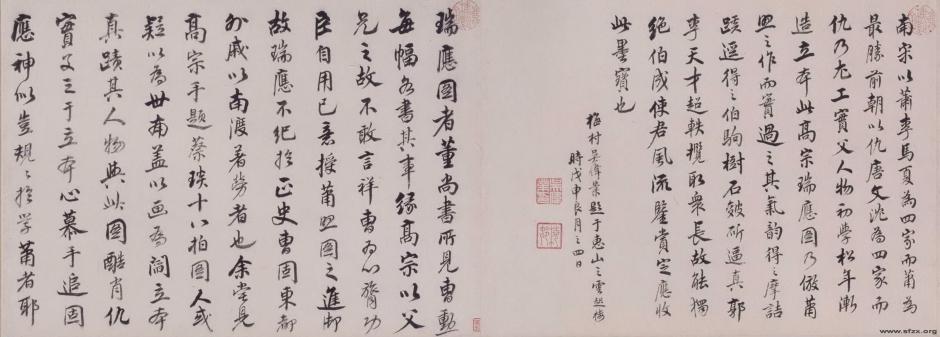 南宋以蕭李馬夏為四家而蕭為
最勝前朝以仇唐文沈為四家而
仇乃尤工實父人物初學松年漸
造立本此高宗瑞應圖乃倣蕭
照之作而實過之其氣韻得之摩詰
蹊逕得之伯駒樹石皴斫逼真郭
李天才超軼攬取衆長故能獨
絕伯成使君風流鑒賞定應收
此墨寶也
梅村吳偉業題于惠山之雲起樓
時戊申良月之四日
瑞應圖者董尚書所見曹勳
每幅各書其事緣高宗以父
兄之故不敢言祥曹為心膂功
臣自用己意授蕭照圖之進御
故瑞應不紀於正史曹固東都
外戚以南渡著勞者也余嘗見
高宗手題蔡琰十八拍圖人或
疑以為世南蓋以画為閻立本
真蹟其人物與此圖酷肖仇
實父之于立本心慕手追固
應神似豈規〻於學蕭者耶
www.sfzx.org